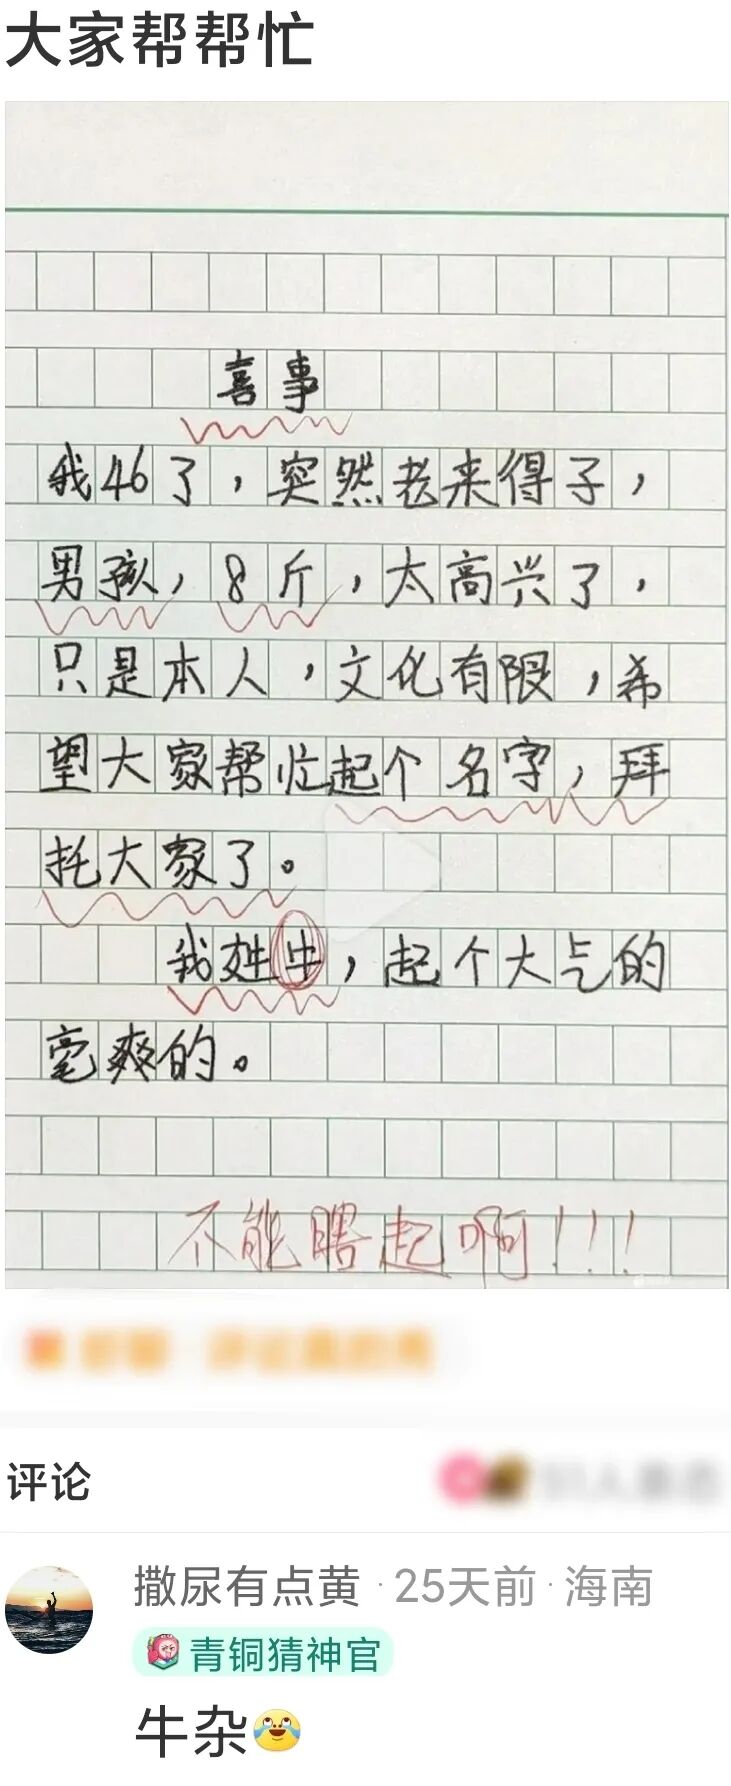 大家帮帮忙
喜事
我46了，突然老来得子，
男孩，8斤，太高兴了，
只是本人，文化有限，希
望大家帮忙起个名字，拜
托大家了。
我姓牛，起个大气的
毫爽的。
不能瞎起啊！！！
评论
撒尿有点黄·25天前·海南
青铜猜神官
牛杂😂